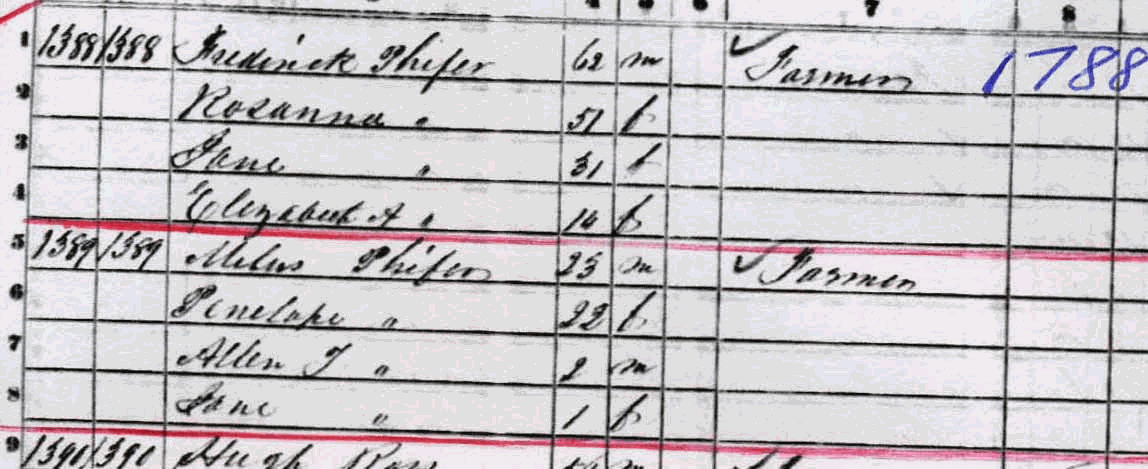 4 5 6 7 8
1 1388 1388 Frederick Phifer 62 m ✓ Farmer 1788
2 Rosanna " 51 f
3 Jane " 31 f
4 Elizabeth A " f
5 1389 1389 Milus Phifer 23 m ✓ Farmer
6 Penelope " 22 f
7 Allen J " 2 m
8 Jane " 1 f
9 1390 1390 Hugh Ross m